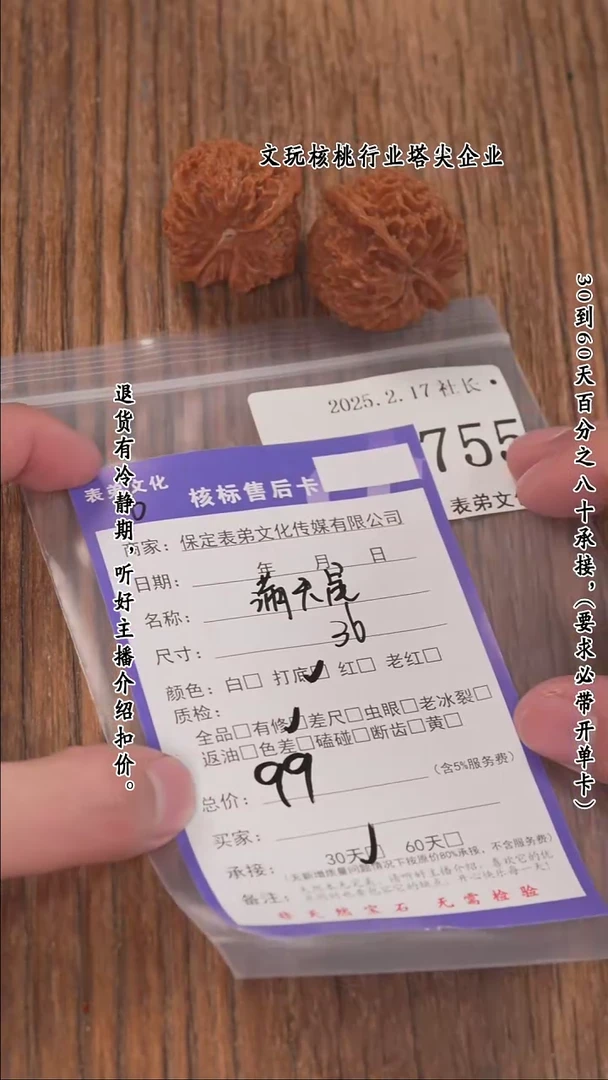 文玩核桃行业塔尖企业
30到60天百分之八十承接，(要求必带开单卡)
退货有冷静期，听好主播介绍扣价。
2025.2.17 社长
755
表弟文
表弟文化
核标售后卡
商家：保定表弟文化传媒有限公司
日期： 年 月 日
名称： 满天星
尺寸： 36
颜色：白□ 打底☑ 红□ 老红□
质检：
全品□有修☑差尺□虫眼□老冰裂□
返油□色差□磕碰□断齿□黄□
总价： 99 (含5%服务费)
买家：
承接： 30天☑ 60天□
(无新增质量问题情况下按原价80%承接，不含服务费)
备注：
非天然宝石 无需检验